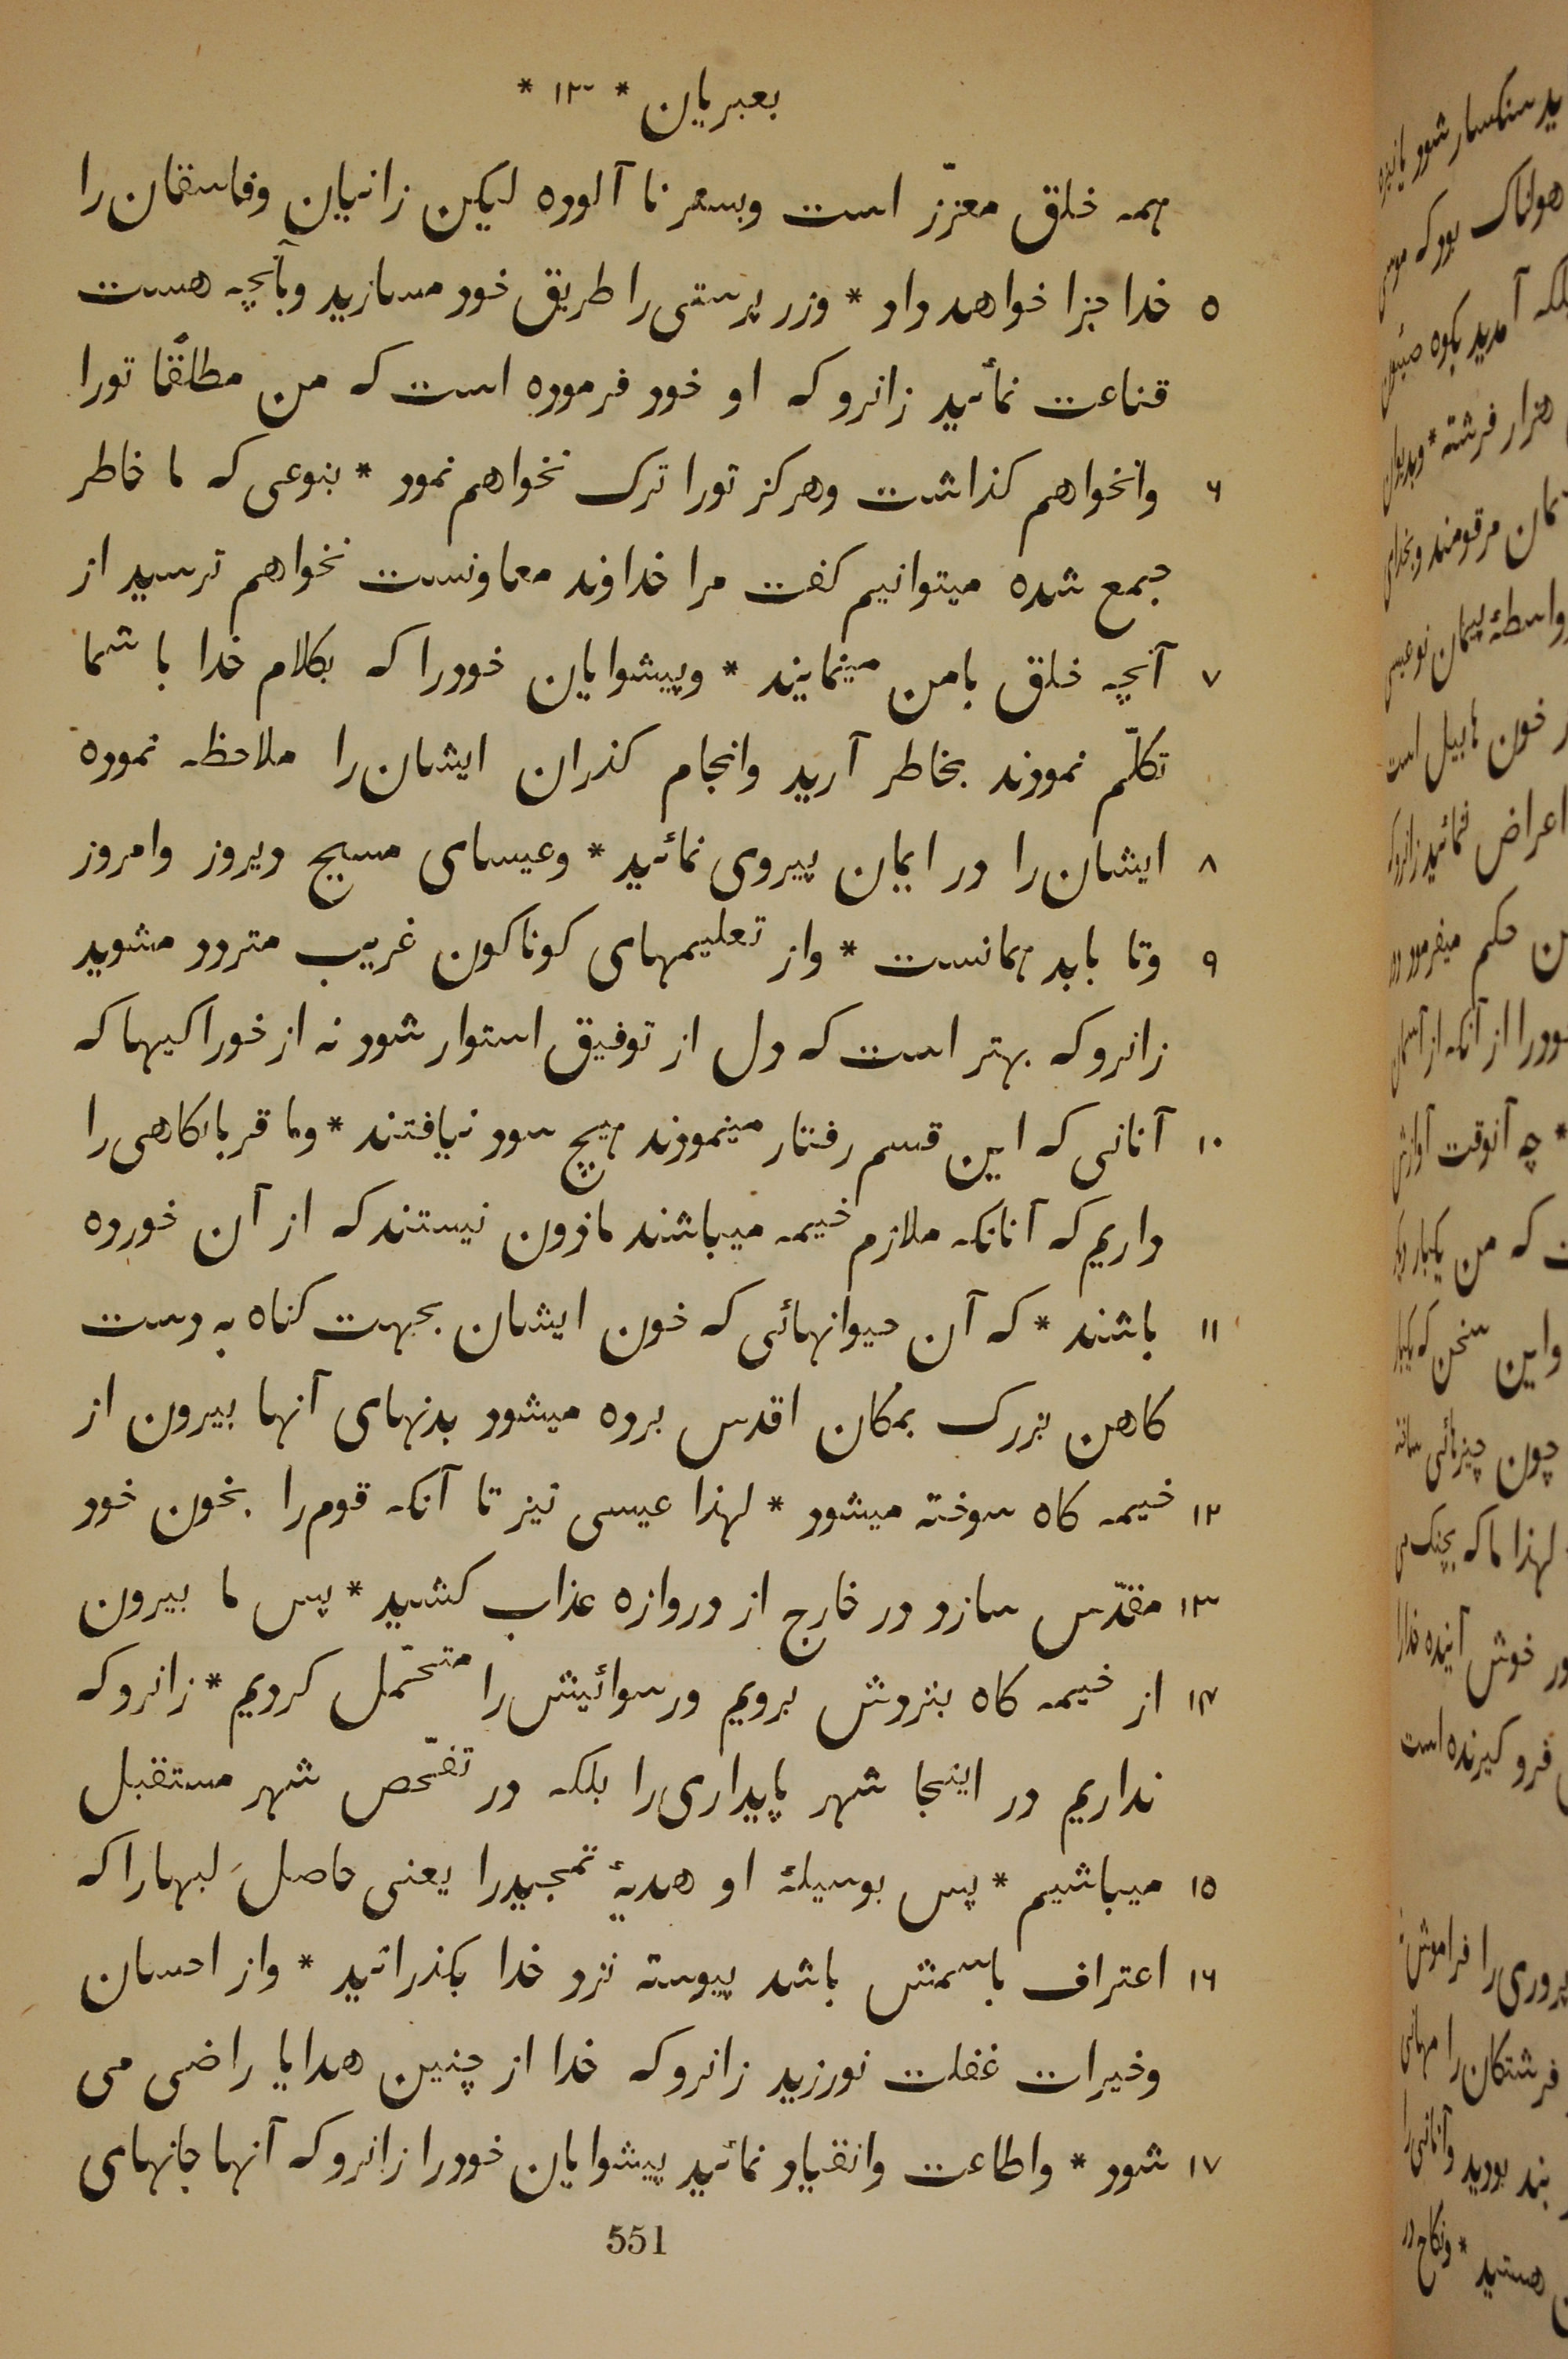 بعبریان * ۱۳ *
همه خلق معزّز است وبستر نا آلوده لیکن زانیان وفاسقان را
۵ خدا جزا خواهد داد * وزر پرستی را طریق خود مسازید وبآنچه هست
قناعت نمائید زانرو که او خود فرموده است که من مطلقًا تورا
۶ وانخواهم کذاشت وهرکز تورا ترک نخواهم نمود * بنوعی که ما خاطر
جمع شده میتوانیم کفت مرا خداوند معاونست نخواهم ترسید از
۷ آنچه خلق بامن مینمایند * وپیشوایان خودرا که بکلام خدا با شما
تکلّم نمودند بخاطر آرید وانجام کذران ایشان را ملاحظه نموده
۸ ایشان را در ایمان پیروی نمائید * وعیسای مسیح دیروز وامروز
۹ وتا بابد همانست * واز تعلیمهای کوناکون غریب متردد مشوید
زانرو که بهتر است که دل از توفیق استوار شود نه از خوراکیها که
۱۰ آنانی که این قسم رفتار مینمودند هیچ سود نیافتند * وما قربانکاهی را
داریم که آنانکه ملازم خیمه میباشند ماذون نیستند که از آن خورده
۱۱ باشند * که آن حیوانهائی که خون ایشان بجهت کناه به دست
کاهن بزرک بمکان اقدس برده میشود بدنهای آنها بیرون از
۱۲ خیمه کاه سوخته میشود * لهذا عیسی نیز تا آنکه قوم را بخون خود
۱۳ مقدّس سازد در خارج از دروازه عذاب کشید * پس ما بیرون
۱۴ از خیمه کاه بنزدش برویم ورسوائیش را متحمّل کردیم * زانرو که
نداریم در اینجا شهر پایداری را بلکه در تفحّص شهر مستقبل
۱۵ میباشیم * پس بوسیلهٔ او هدیهٔ تمجیدرا یعنی حاصلَ لبهارا که
۱۶ اعتراف باسمش باشد پیوسته نزد خدا بکذرانید * واز احسان
وخیرات غفلت نورزید زانرو که خدا از چنین هدایا راضی می
۱۷ شود * واطاعت وانقیاد نمائید پیشوایان خودرا زانرو که آنها جانهای
551